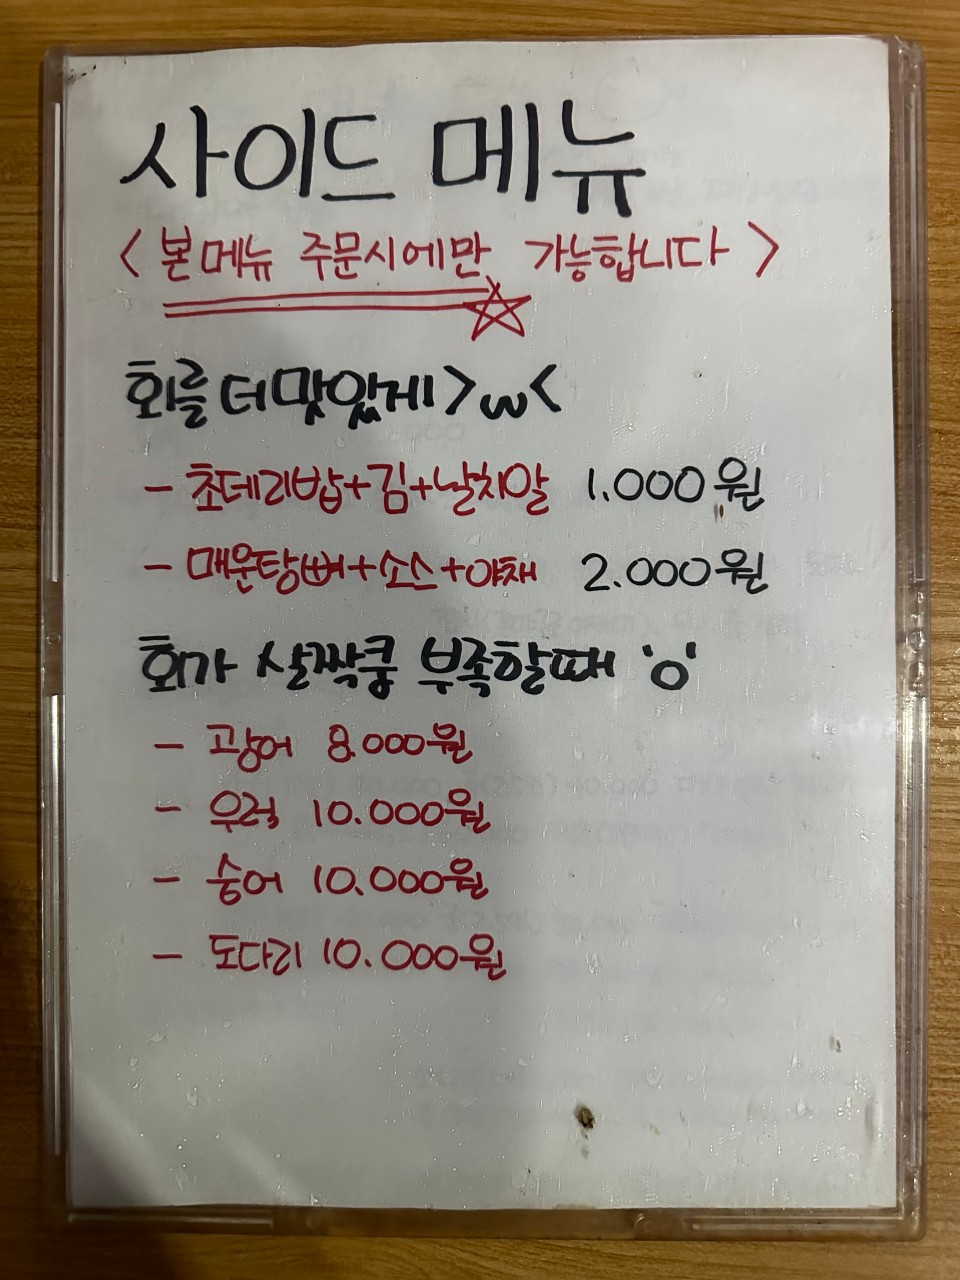 사이드 메뉴
< 본메뉴 주문시에만 가능합니다 >
회를 더 맛있게 >w<
- 초데리밥+김+날치알 1.000원
- 매운탕뼈+소스+야채 2.000원
회가 살짝쿵 부족할때 'o'
- 광어 8.000원
- 우럭 10.000원
- 숭어 10.000원
- 도다리 10.000원